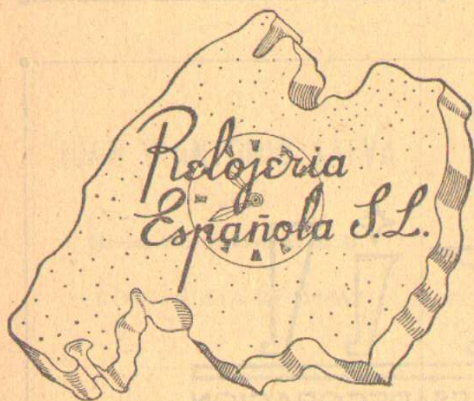 Relojeria
Española S.L.